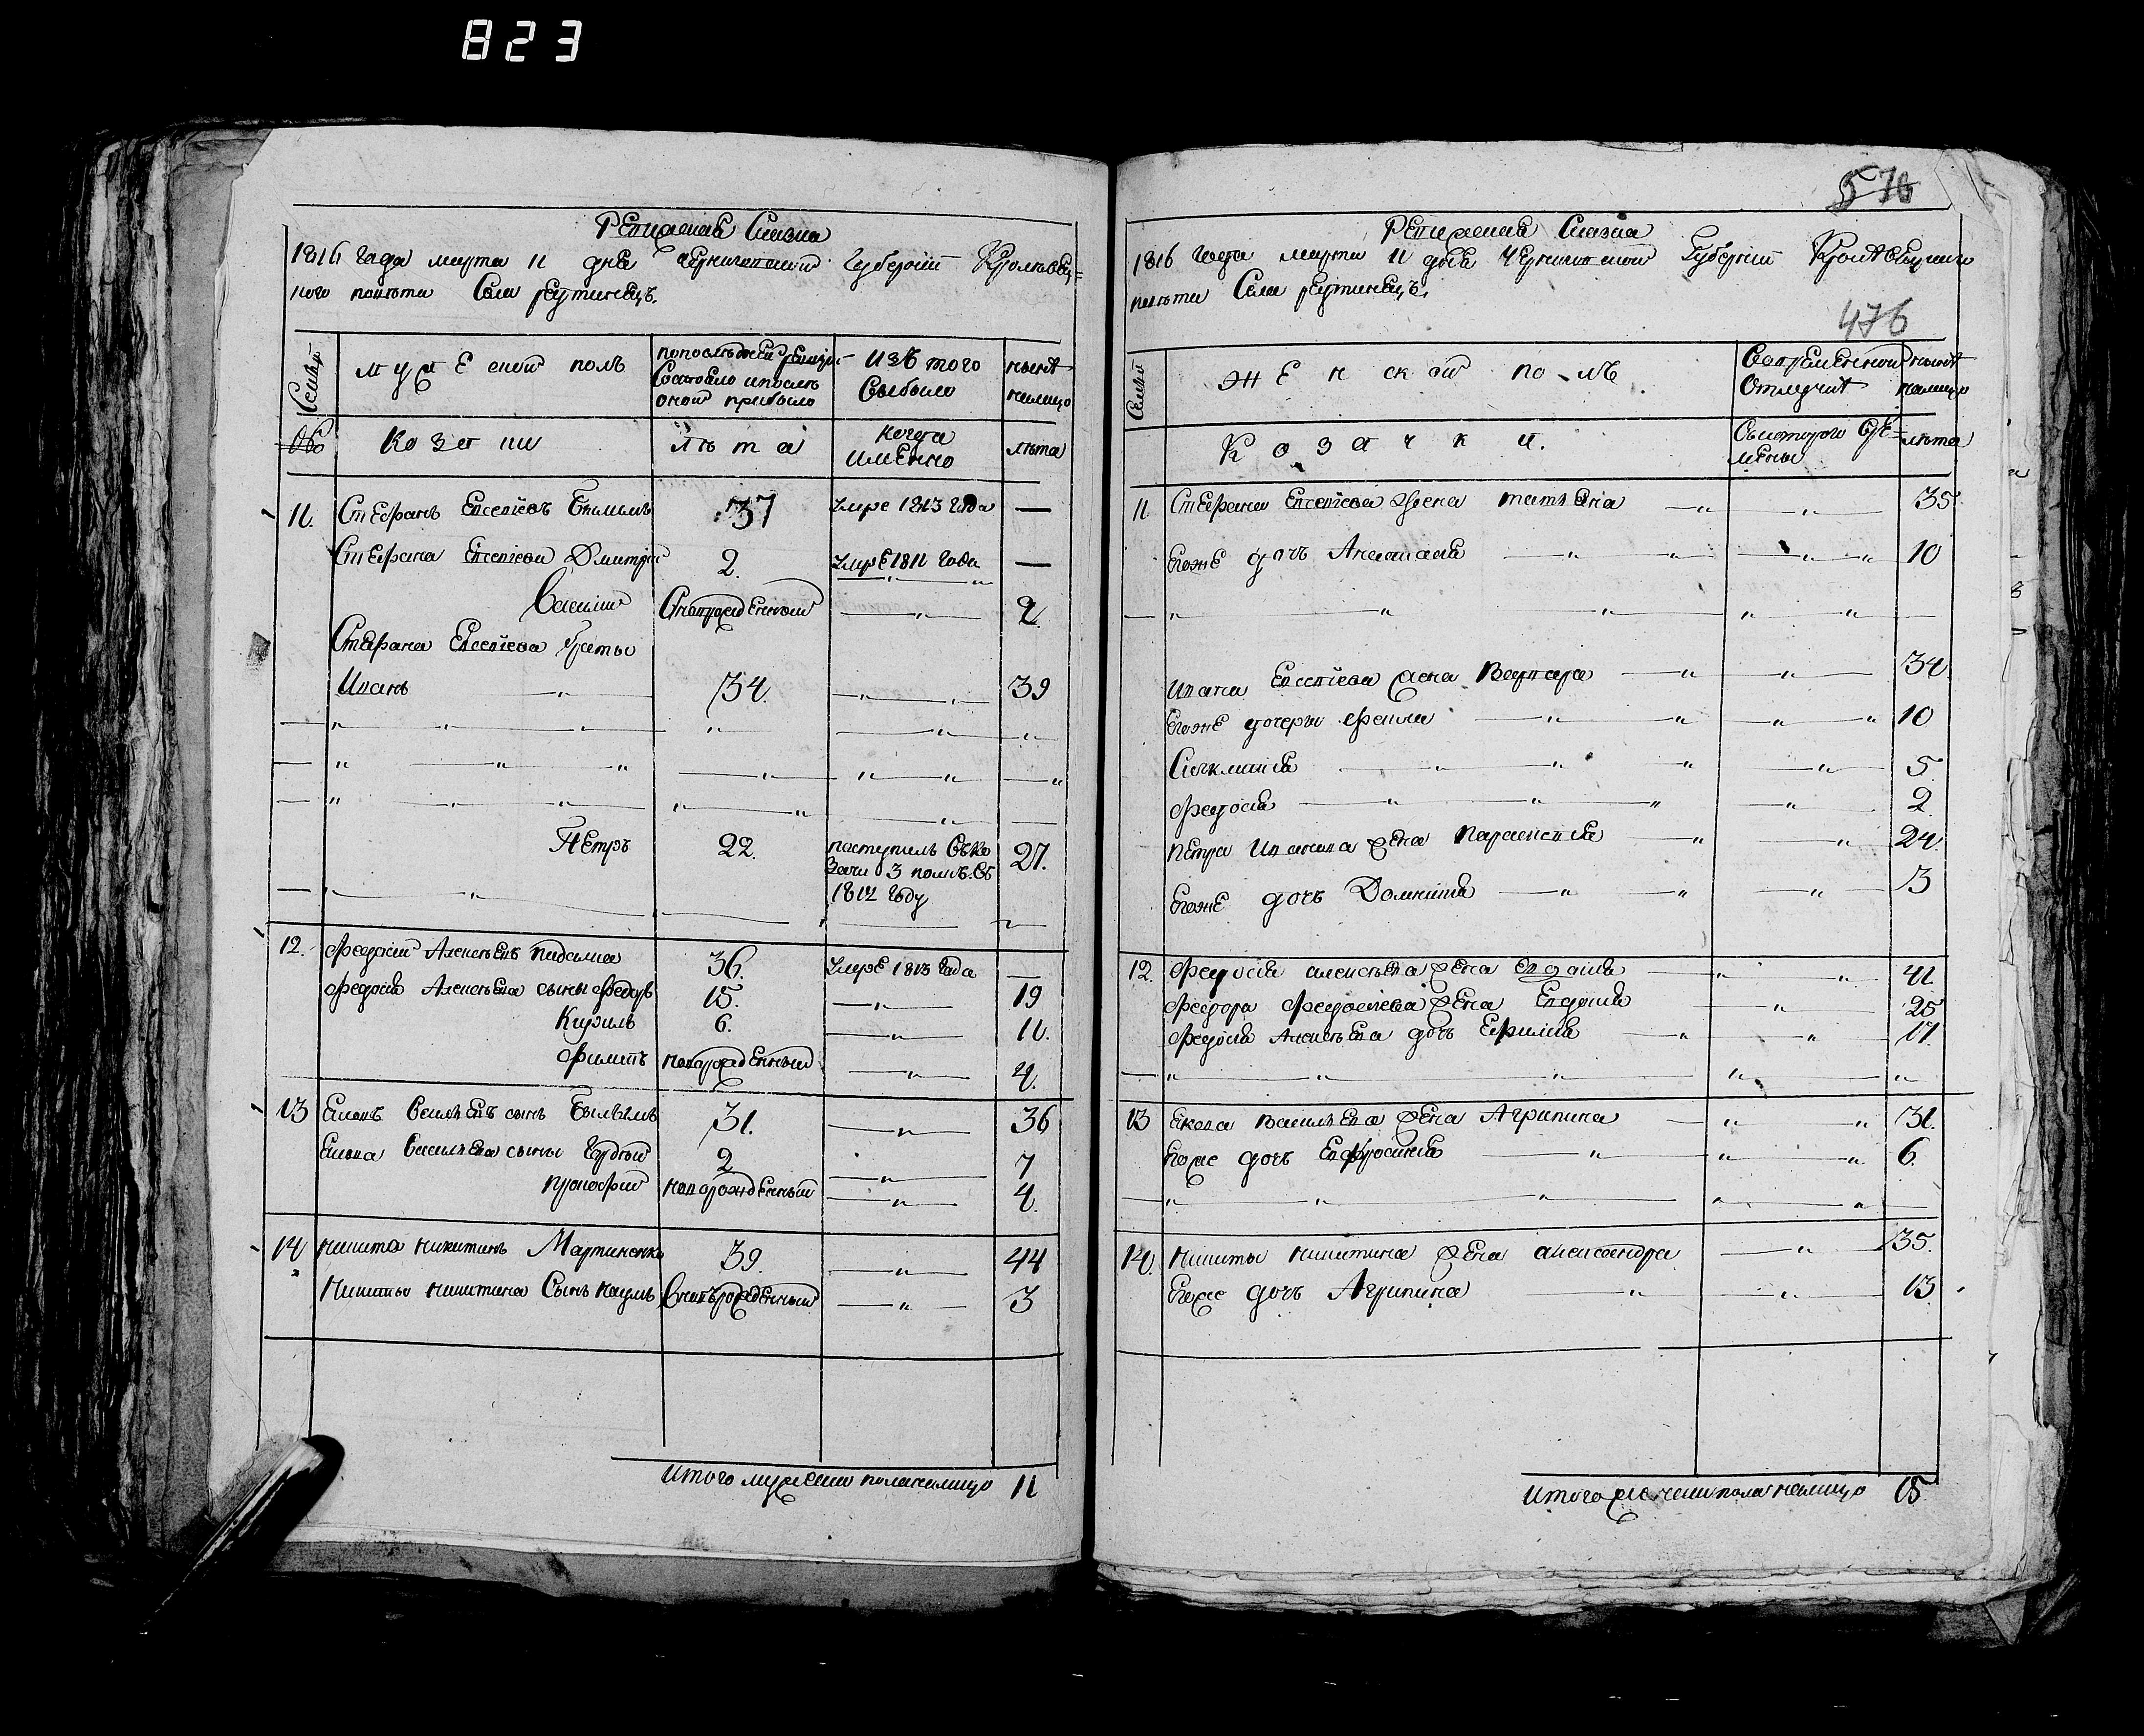 823
Ревизская Сказка
1816 года марта 11 дня Черниговской Губернии Кролевец-
кого повета Села реутинецъ.
Семьи
мужеской полъ
попоследней ревизии
Состояло ипосле
оной прибыло
изъ того
Выбыло
ныне
налицо
козаки
лета
когда
именно
лета
11. Стефанъ Евсеевъ 37 умре 1813 года —
Стефана Евсеева Дмитрий 2. умре 1811 года —
Василий новорожденной 2
Стефана Евсеева браты
Иванъ 34. 39
Петръ 22. поступилъ въко
зачи 3 полкъ въ 27.
1812 году
12. Федосий Алексеевъ 36. умре 1813 года —
Федосия Алексеева сыны Федоръ 15. 19
Кирилъ 6. 11.
Филипъ новорожденный 4.
13 Яковъ Васильевъ сынъ 31. 36
Якова Васильева сыны 2 7
Прокофий новорожденный 4.
14 никита никитинъ Мартиненко 39. 44
Никиты никитина Сынъ наумъ новорожденный 3
Итого мужеска пола налицо 11
576
Ревизская Сказка
1816 года марта 11 дня Черниговской Губернии Кролевецкого
повета Села реутинецъ.
476
Семьи
женской полъ
Вовременной
Отлучке
ныне
налицо
Козачки.
Скоторого вре-
мены
лета
11 Стефана Евсеева жена татияна 35
Егоже дочъ Анастасия 10
Ивана Евсеева жена Варвара 34.
Егоже дочери Фекла 10
5
Федосия 2
Петра Иванова жена Параскевия 24.
Егоже дочъ Домникия 3
12. Федосия алексеева жена Евдокия 41
Федора Федосиева жена Евдокия 25
Федосия Алексеева дочъ Ефимия 17.
13 Якова васильева жена Агрипина 31.
Егоже дочъ Евфросиния 6.
14. никиты никитина жена александра 35.
Егоже дочъ Агрипина 13
Итого женска пола налицо 15